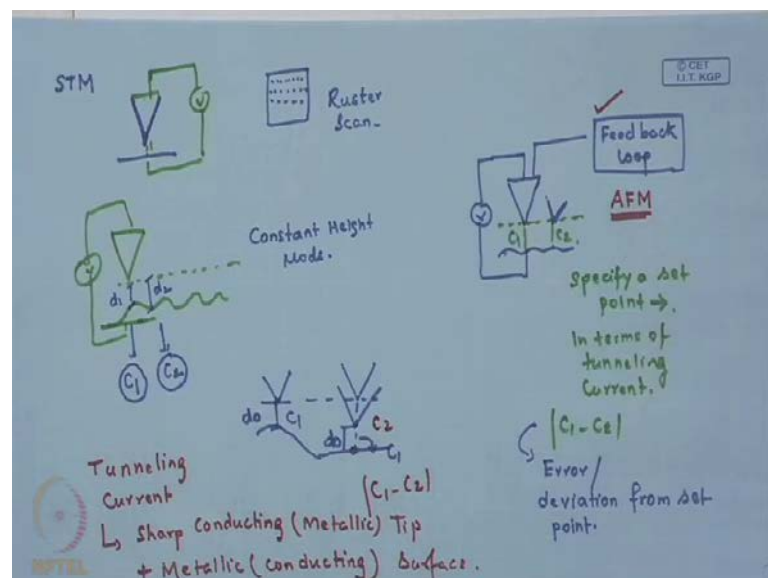 STM
Ruster
Scan.
© CET
I.I.T. KGP
V
Feed back
loop
AFM
V
C1
C2.
Constant Height
Mode.
V
d1
d2
C1
C2
Specify a set
point →.
In terms of
tunneling
Current.
|C1-C2|
Error/
deviation from set
point.
do
C1
do
C2
C1
|C1-C2|
Tunneling
Current
↳ Sharp Conducting (Metallic) Tip
+ Metallic (conducting) Surface.
NPTEL